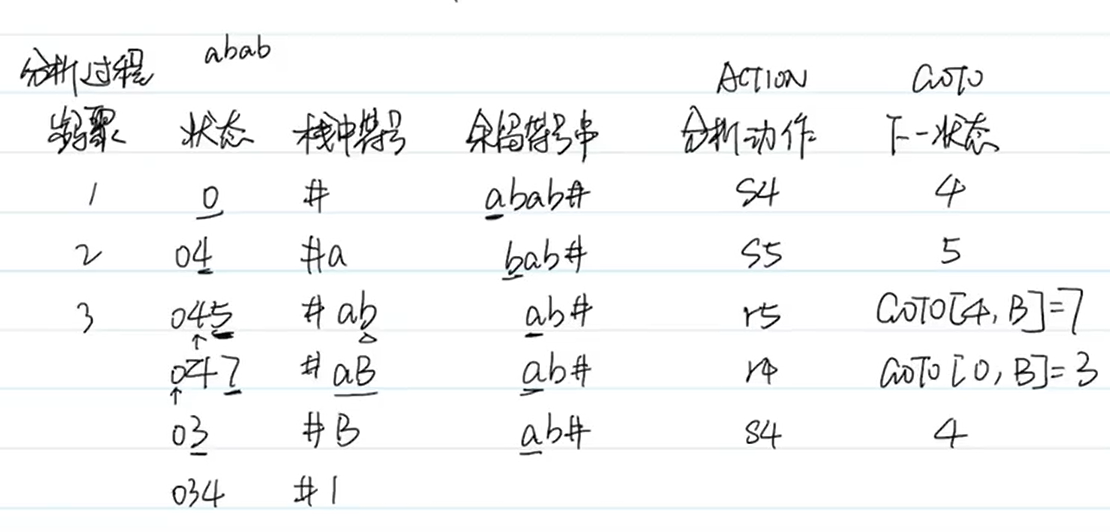 分析过程 abab ACTION GOTO
步骤 状态 栈中符号 余留符号串 分析动作 下一状态
1 0 # abab# S4 4
2 04 #a bab# S5 5
3 045 #ab ab# r5 GOTO[4,B]=7
047 #aB ab# r4 GOTO[0,B]=3
03 #B ab# S4 4
034 #